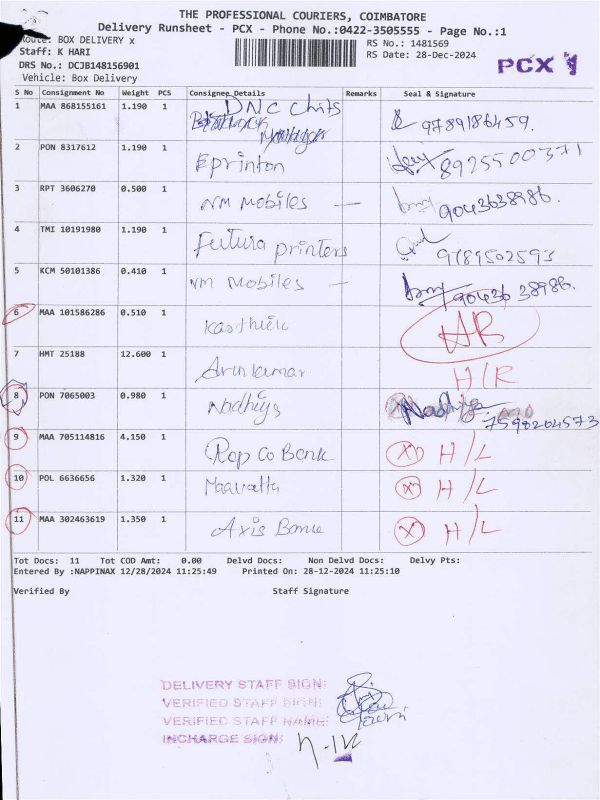 THE PROFESSIONAL COURIERS, COIMBATORE
Delivery Runsheet - PCX - Phone No.:0422-3505555 - Page No.:1
Route: BOX DELIVERY x
RS No.: 1481569
Staff: K HARI
RS Date: 28-Dec-2024
DRS No.: DCJB148156901
PCX
Vehicle: Box Delivery
S No Consignment No Weight PCS Consignee Details Remarks Seal & Signature
1 MAA 868155161 1.190 1 DNC Chits 9789186459.
Manager
2 PON 8317612 1.190 1 Eprinton 8925500371
3 RPT 3606270 0.500 1 NM Mobiles — 9043638986.
4 TMI 10191980 1.190 1 Futura printers 9789502593
5 KCM 50101386 0.410 1 NM Mobiles — 9043638986.
6 MAA 101586286 0.510 1 Karthick
7 HMT 25188 12.600 1 Arunkumar H/R
8 PON 7065003 0.980 1 Nadhiya Nadhiya
7598204573
9 MAA 705114816 4.150 1 Rep Co Bank X H/L
10 POL 6636656 1.320 1 X H/L
11 MAA 302463619 1.350 1 Axis Bank X H/L
Tot Docs: 11 Tot COD Amt: 0.00 Delvd Docs: Non Delvd Docs: Delvy Pts:
Entered By :NAPPINAX 12/28/2024 11:25:49 Printed On: 28-12-2024 11:25:10
Verified By Staff Signature
DELIVERY STAFF SIGN:
VERIFIED STAFF SIGN:
VERIFIED STAFF NAME:
INCHARGE SIGN: